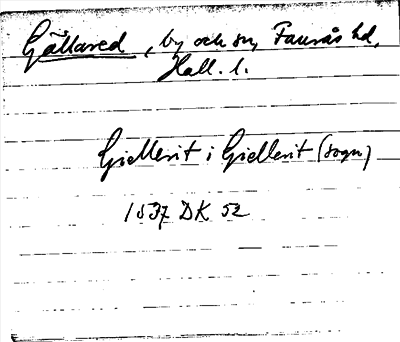 Gällared, by och sn, Faurås hd,
Hall. l.
Giellerit i Giellerit (sogn)
1537 DK 52